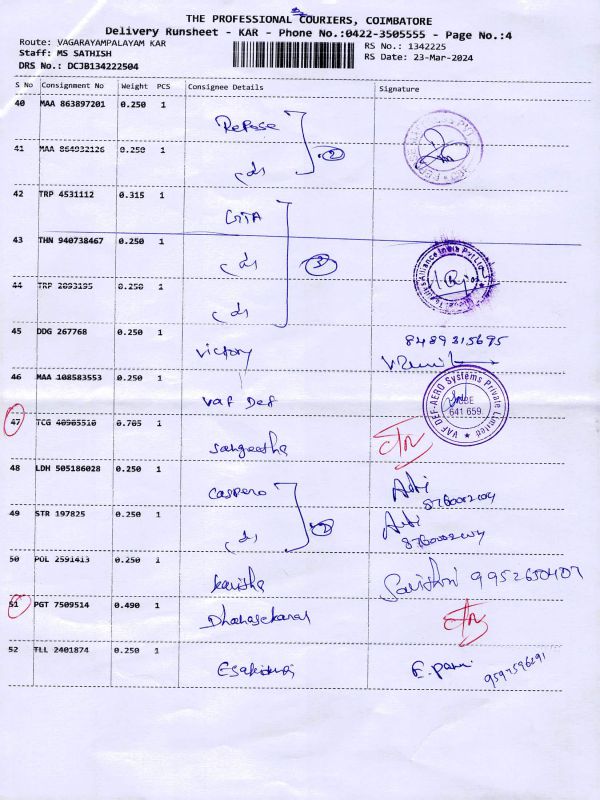 THE PROFESSIONAL COURIERS, COIMBATORE
Delivery Runsheet - KAR - Phone No.:0422-3505555 - Page No.:4
Route: VAGARAYAMPALAYAM KAR
RS No.: 1342225
Staff: MS SATHISH
RS Date: 23-Mar-2024
DRS No.: DCJB134222504
S No Consignment No Weight PCS Consignee Details Signature
40 MAA 863897201 0.250 1
Repose
41 MAA 864932126 0.250 1 2
42 TRP 4531112 0.315 1
43 THN 940738467 0.250 1
3
44 TRP 2893195 0.250 1
45 DDG 267768 0.250 1
Victory 8489315695
46 MAA 108583553 0.250 1
Vaf Def
VAF DEF-AERO Systems Private Limited
641 659.
47 TCG 40905510 0.705 1
Sangeetha
48 LDH 505186028 0.250 1
Caspero
49 STR 197825 0.250 1 2
50 POL 2591413 0.250 1
9952650407
51 PGT 7509514 0.490 1
Dhanasekaran
52 TLL 2401874 0.250 1
9597596291